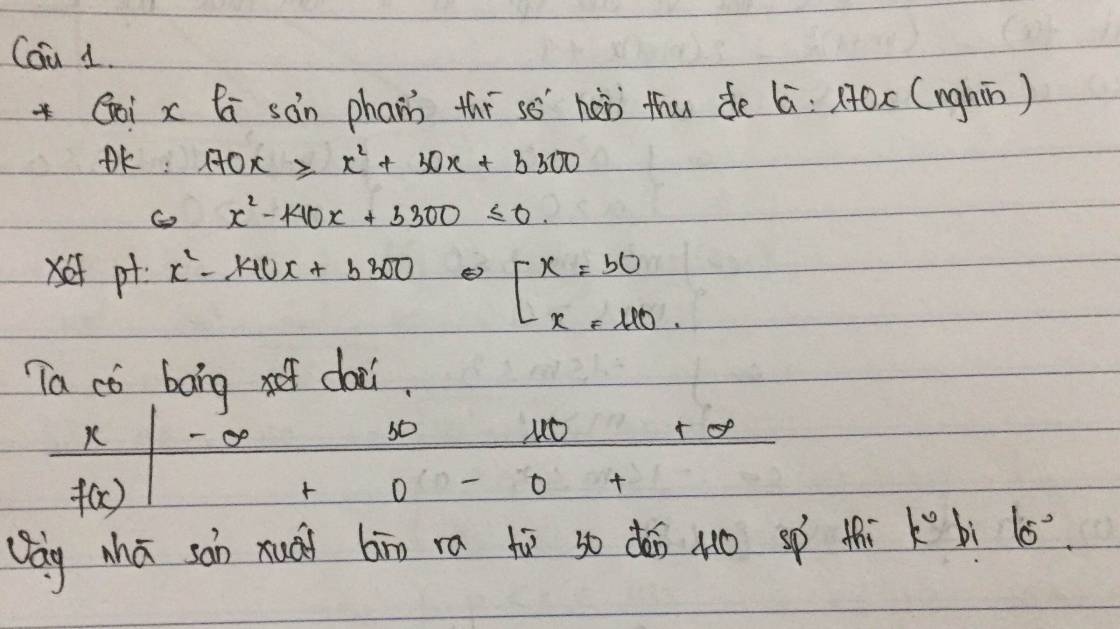 Câu 1.
* Gọi x là sản phẩm thì số tiền thu đc là: 170x (nghìn)
ĐK: 170x ≥ x² + 30x + 3300
⇔ x² - 140x + 3300 ≤ 0.
Xét pt: x² - 140x + 3300 ⇔ [ x = 30
x = 110.
Ta có bảng xét dấu.
x | -∞ 30 110 +∞
f(x) | + 0 - 0 +
Vậy nhà sản xuất làm ra từ 30 đến 110 sp thì k° bị lỗ.